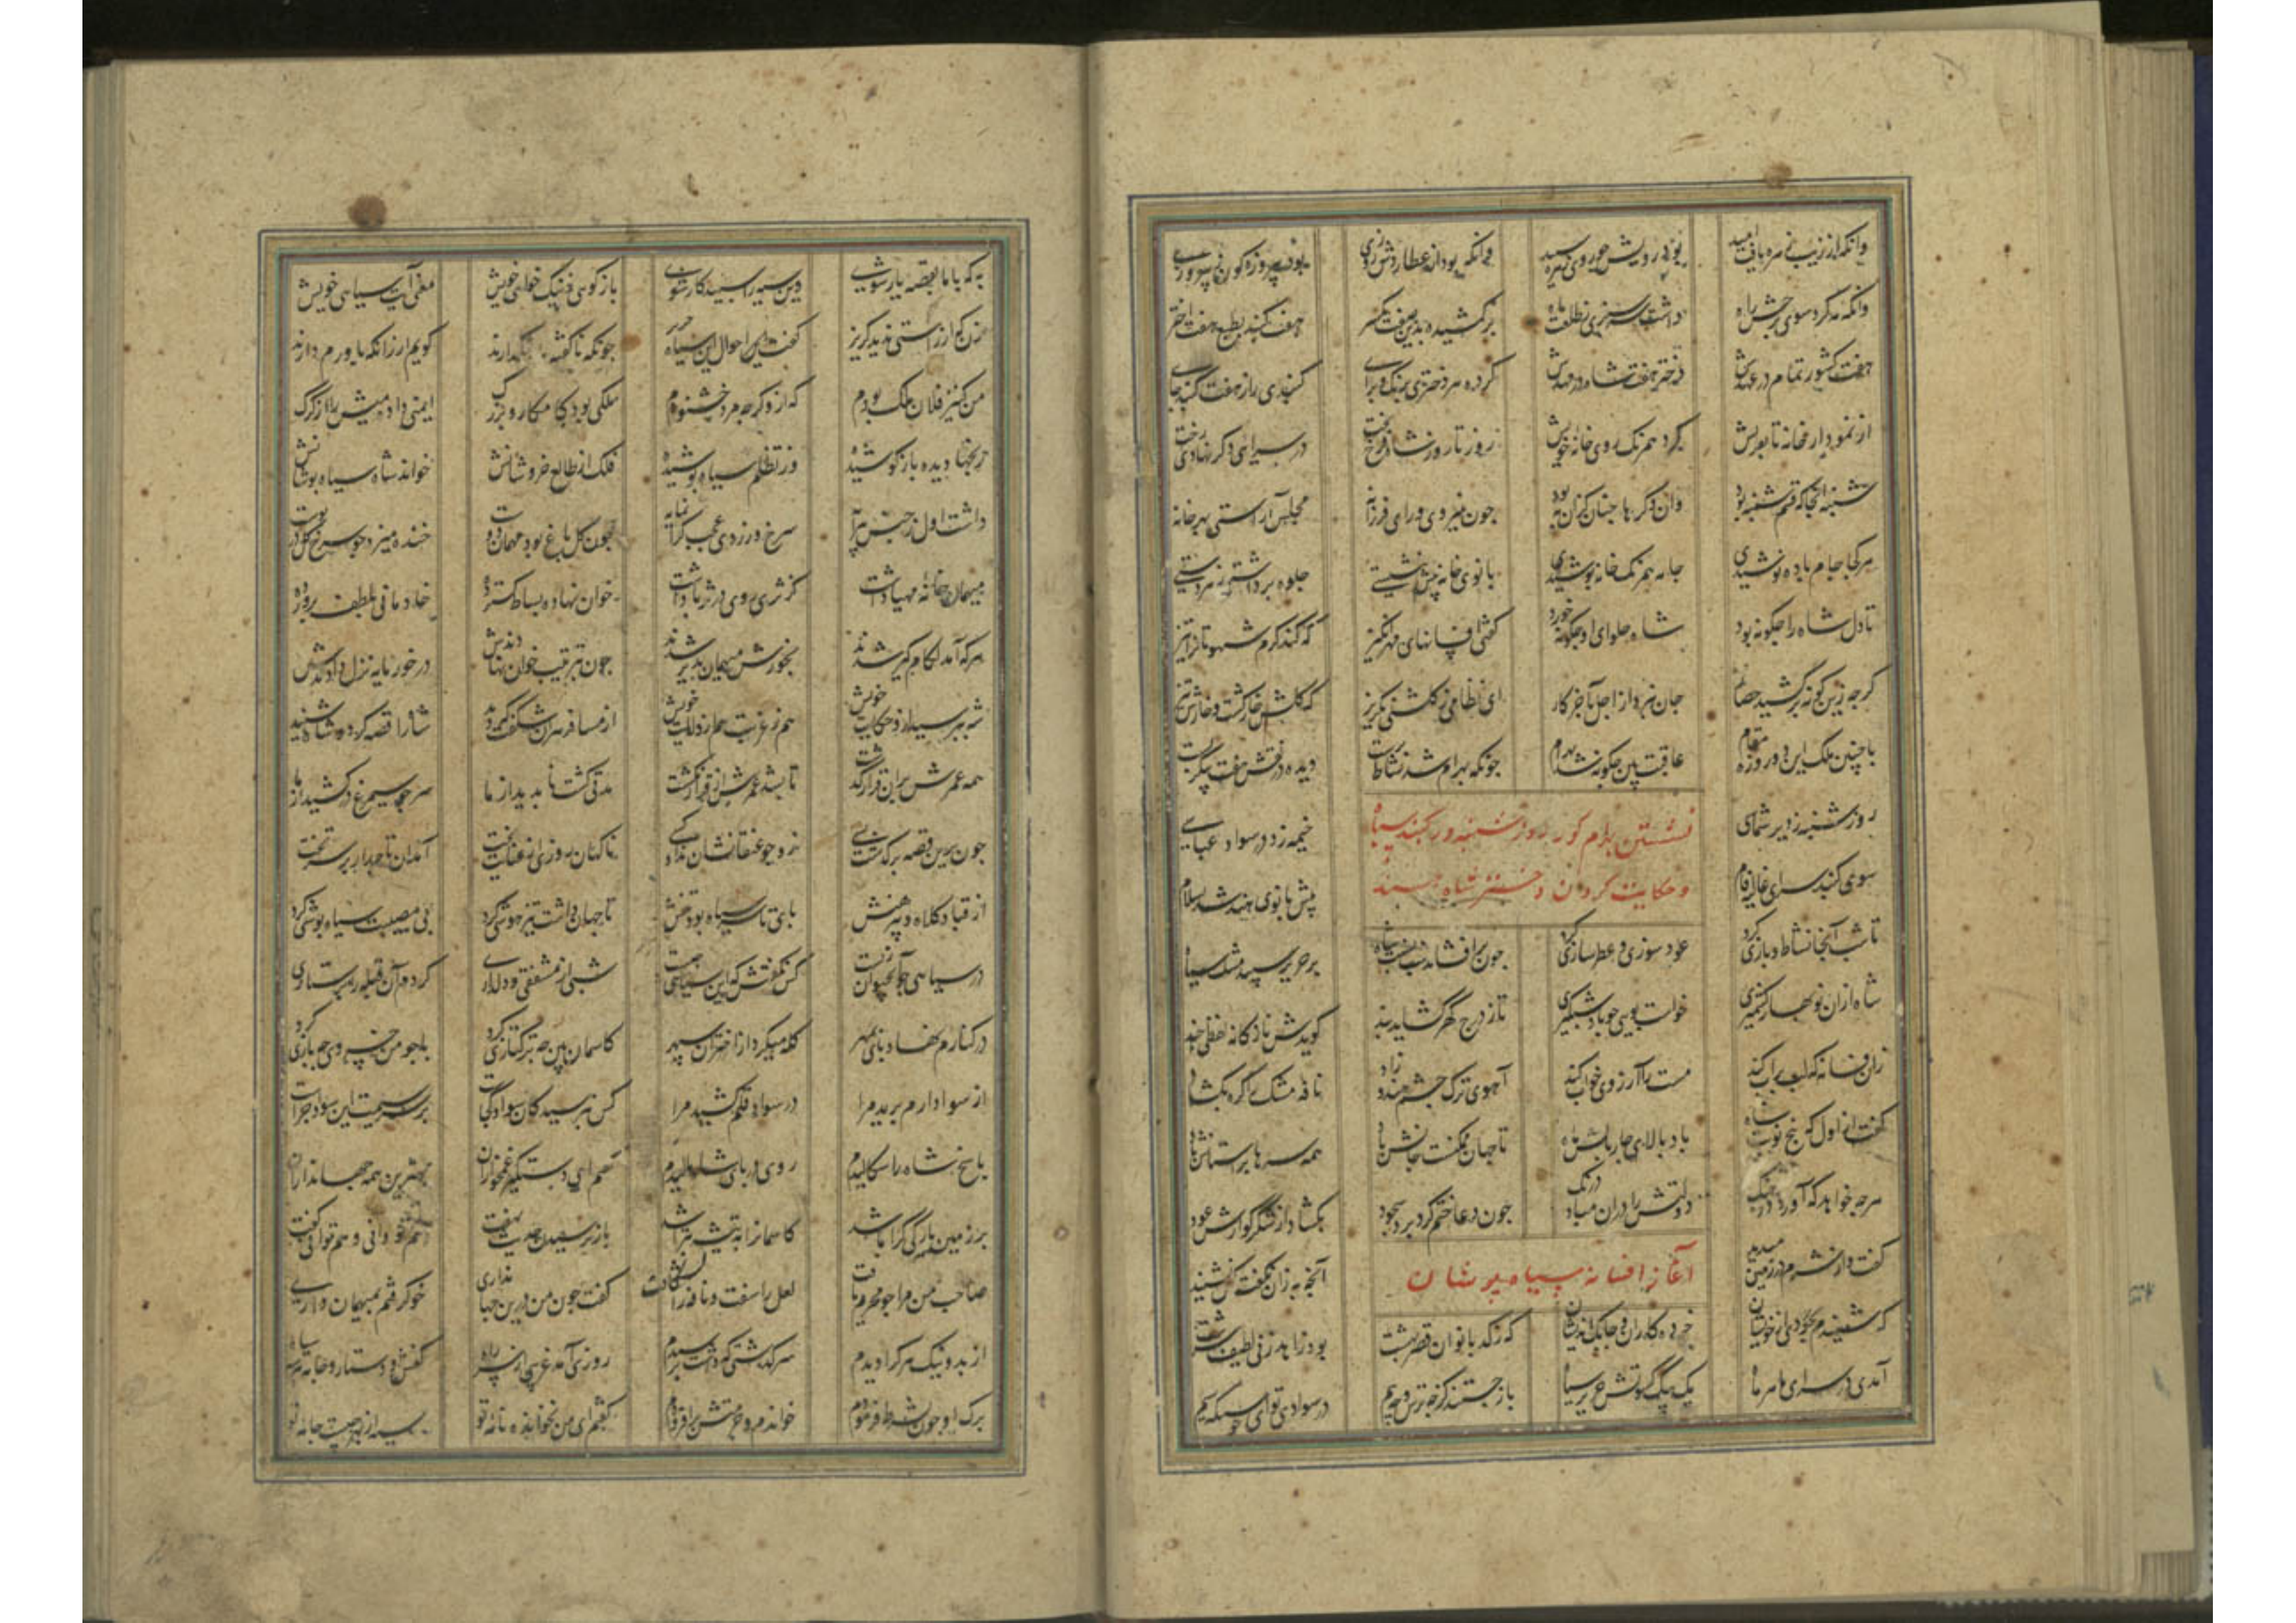 وانکه از زیب زهره یافت امید بود رویش چو روی زهره سپید وانکه بود از عطاردش روزی بود پیروزه کون ز پیروزی
وانکه مه کرد سوی برجش راه داشت سرسبزی ز طلعت ماه برکشیده بدین صفت پیکر هفت کنبد بطبع هفت اختر
هفت کشور تمام در عهدش دختر هفت شاه در مهدش کرده هر دختری برنک و برای کنبدی را ز هفت کنبد جای
از نمودار خانه تا بفریش کرد همرنک روی خانه خویش روز تا روز شاه فرخ بخت در سرای دکر نهادی رخت
شنبه انجا که قسم شنبه بود وان دکرها چنان کزان به بود چون بنیروی و رای فرزانه مجلس آراستی بهر خانه
هر کجا جام باده نوشیدی جامه همرنک خانه پوشیدی بانوی خانه پیش بنشستی جلوه برداشتی ز هر دستی
تا دل شاه را چکونه برد شاه حلوای او چکونه خورد کفتی افسانهای مهرانکیز که کند کرم شهوتانرا تیز
کرچه زین کونه برکشید حصار جان نبرد از اجل بآخر کار ای نظامی ز کلشنی بکریز که کلش خار کشت و خارش تیز
با چنین ملک این دو روزه مقام عاقبت بین چکونه شد بهرام چونکه بهرام شد نشاط پرست دیده در نقش هفت پیکر بست
روز شنبه ز دیر شماسی خیمه زد در سواد عباسی
نشستن بهرام کور روز شنبه در کنبد سیاه
سوی کنبد سرای غالیه فام پیش بانوی هند شد بسلام
و حکایت کردن دختر شاه هند
تا شب آنجا نشاط و بازی کرد عود سوزی و عطرسازی کرد چون برافشاند شب بسنت شاه بر حریر سپید مشک سیاه
شاه ازان نوبهار کشمیری خواست بویی چو باد شبکیری تا ز درج کهر کشاید بند کویدش نازکانه لفظی چند
زان فسانه که لب پر آب کند مست را آرزوی خواب کند آهوی ترک چشم هندو زاد نافه مشک را کره بکشاد
کفت از اول که پنج نوبت شاه باد بالای چار بالش ماه تا جهان ممکنست جانش باد همه سرها بر آستانش باد
هرچه خواهد که آورد در چنک دولتش را دران مباد درنک چون دعا ختم کرد برد سجود بکشاد از شکر کوارش عود
کفت و از شرم در زمین میدید آنچه به زان نکفت کس نشنید
آغاز افسانه سیاه پوشان
که شنیدم بخردی از خویشان خرده کاران و چابک اندیشان که ز کدبانوان قصر بهشت بود زاهد زنی لطیف سرشت
آمدی در سرای ما هر ماه یک بیک کسوتش حریر سیاه باز جستند کز چه ترس و چه بیم در سوادی تو ای سبیکه سیم
به که با ما بقصه یار شوی وین سیه را سپید کار شوی باز کوی ز نیک خواهی خویش معنی آیت سیاهی خویش
زن که از راستی ندید کریز کفت احوال این سیاه حریر چونکه ناکفته نکذارید کویم ار زانکه باورم دارید
من کنیز فلان ملک بودم که ازو کرچه مرد خشنودم ملکی بود کامکار و بزرک ایمنی داده میش را از کرک
رنجها دیده باز کوشیده وز تظلم سیاه پوشیده فلک از طالع خروشانش خوانده شاه سیاه پوشانش
داشت اول ز جنس پیرایه سرخ و زردی عجب کرانمایه چون کل باغ بود مهمان دوست خنده میزد چو سرخ کل در پوست
میهمان خانه مهیا داشت کز ثری روی در ثریا داشت خوان نهاده بساط کسترده خادمانی بلطف پرورده
هر که آمد لکام کیر شدند بخورش میهمان پذیر شدند چون بترتیب خوان نهادندش در خور پایه نزل دادندش
شه بپرسید ازو حکایت خویش هم ز غربت هم از ولایت خویش از مسافر هران شکفت که دید شاه را قصه کرد و شاه شنید
همه عمرش بران قرار کذشت تا نشد عمرش از قرار نکشت مدتی کشت ناپدید از ما سر چو سیمرغ درکشید از ما
چون برین قصه برکذشت بسی زو چو عنقا نشان نداد کسی ناکهان روزی از عنایت بخت آمد آن تاجدار بر سر تخت
از قبا و کلاه و پیرهنش پای تا سر سیاه بود تنش تا جهان داشت تیز هوشی کرد بی مصیبت سیاه پوشی کرد
در سیاهی چو آب حیوان زیست کس نکفتش که این سیاهی چیست شبی از مشفقی و دلداری کردم آن قبله را پرستاری
در کنارم نهاد پای بمهر کله میکرد از اختران سپهر کاسمان بین چه ترکتازی کرد با چو من خسروی چه بازی کرد
از سواد ارم برید مرا در سواد قلم کشید مرا کس نپرسید کان سواد کجاست بر سر سیمت این سواد چراست
پاسخ شاه را سکالیدم روی در پای شاه مالیدم کفتم ای دستکیر غمخواران بهترین همه جهانداران
بر زمین یارکی کرا باشد کاسمانرا بتیشه بتراشد باز پرسیدن حدیث نهفت هم تو دانی و هم توانی کفت
صاحب من مرا چو محرم یافت لعل را سفت و نافه را بشکافت کفت چون من درین جهانداری خو کرفتم بمیهمان داری
از بد و نیک هر که را دیدم سرکذشتی که داشت پرسیدم روزی آمد غریبی از سر راه کفش و دستار و جامه هر سه سیاه
برک او چون بشرط فرمودم خواندم و حشمتش برافزودم کفتم ای من نخوانده نامه تو سیه از بهر چیست جامه تو